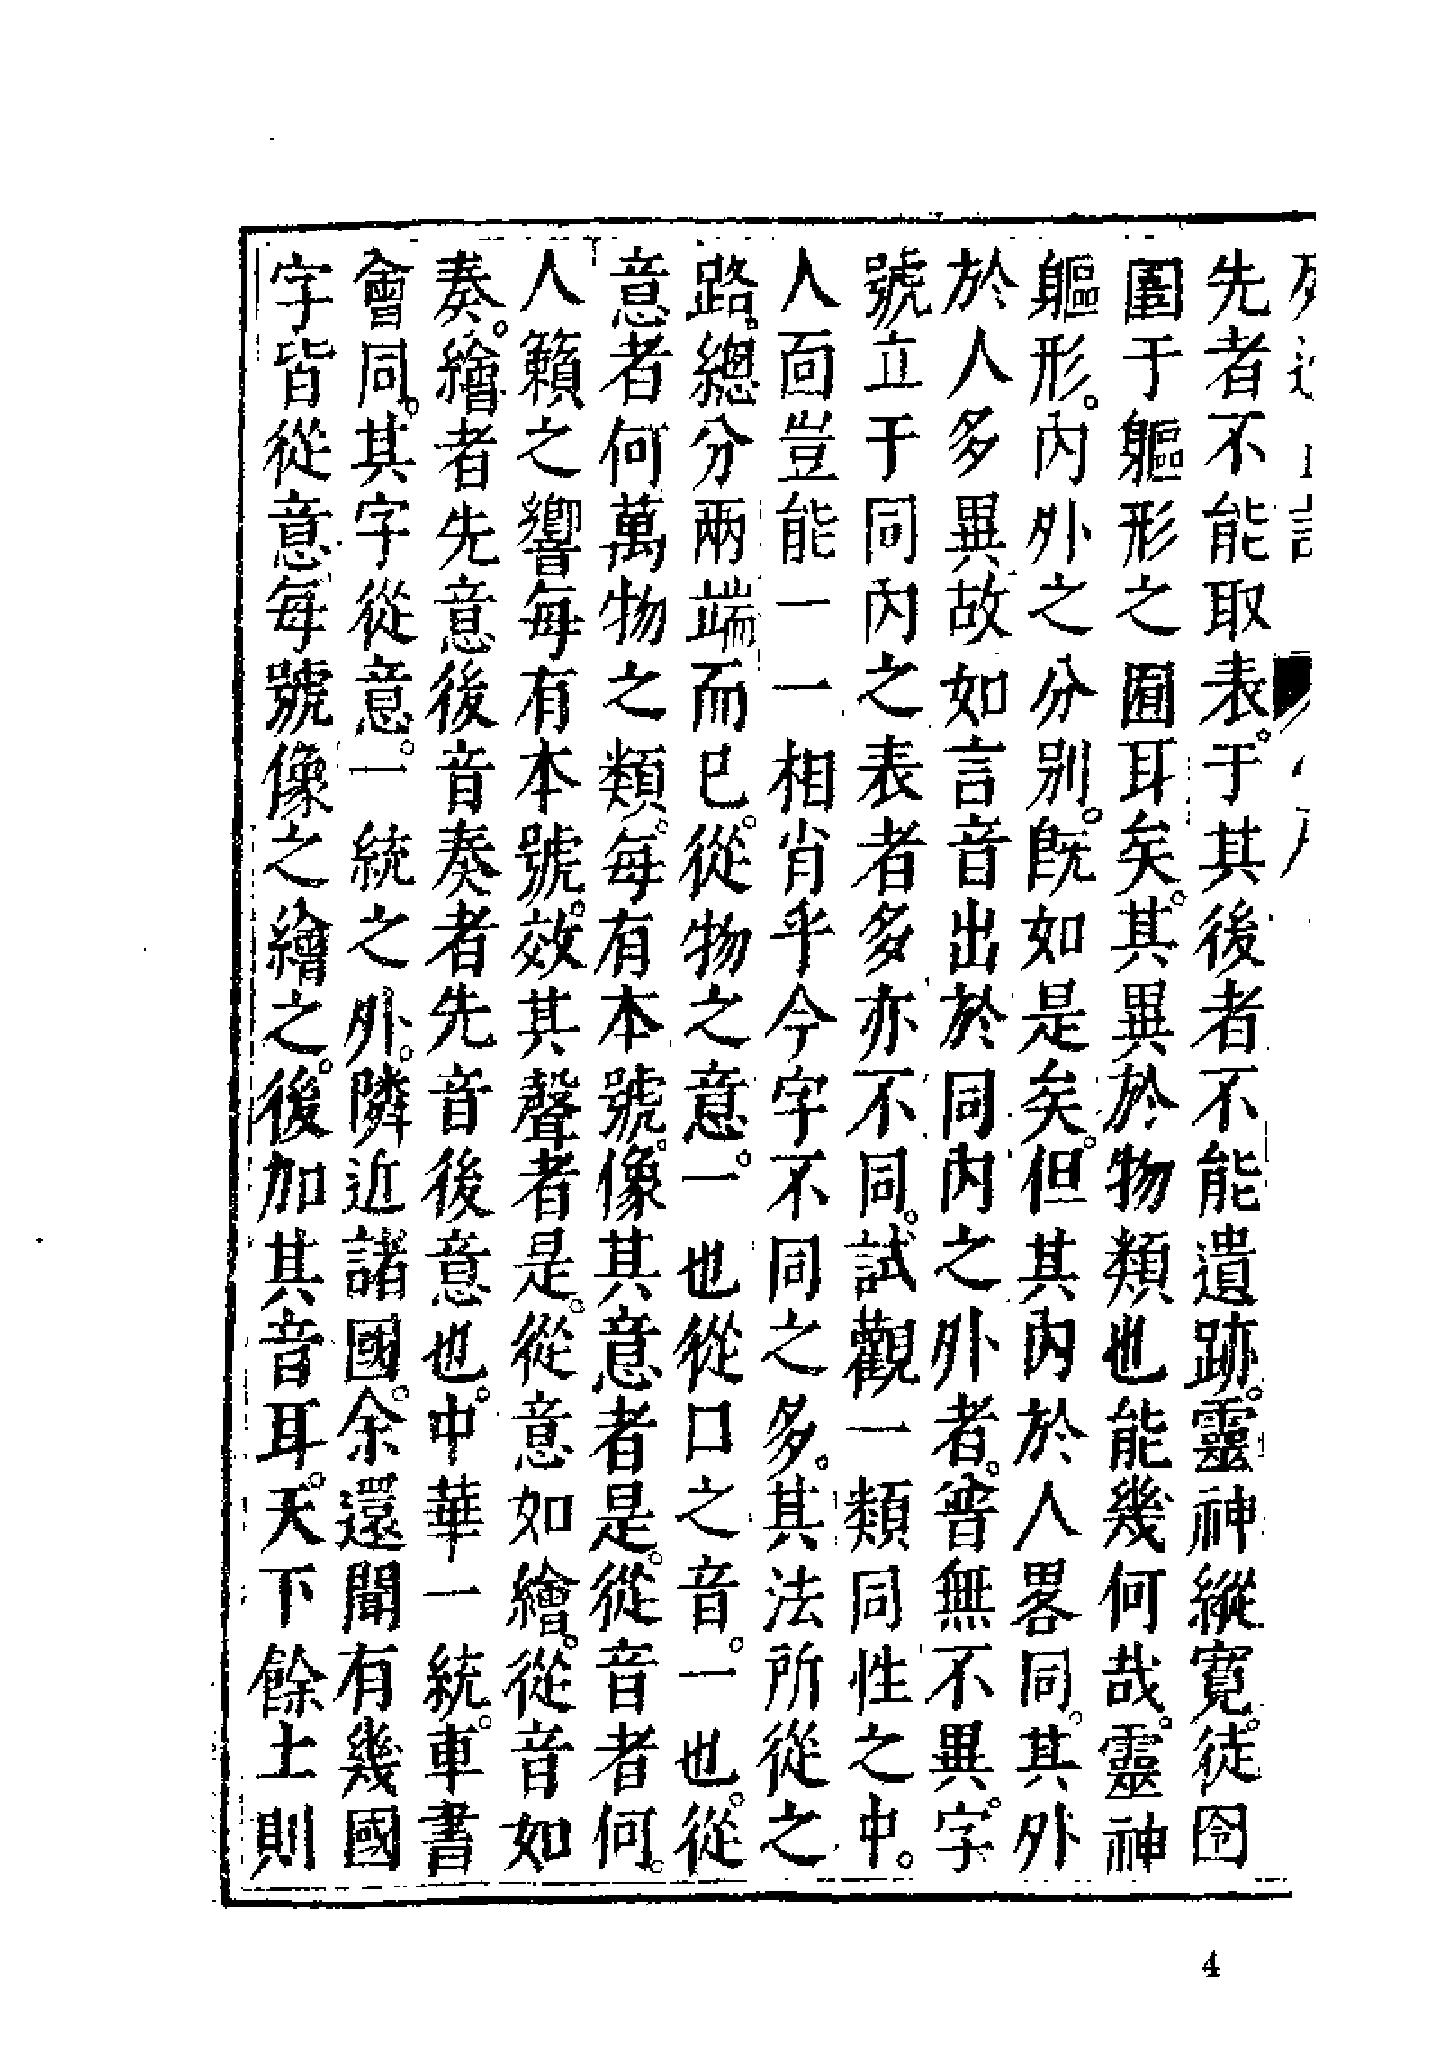 先者不能取表。于其後者不能遺跡。靈神縱寬。徒囹
圄于軀形之圄耳矣。其異於物類也能幾何哉。靈神
軀形。內外之分別。旣如是矣。但其內於人畧同。其外
於人多異故如言音出於同內之外者。普無不異。字
號立于同內之表者多亦不同。試觀一類同性之中。
人面豈能一一相肖乎今字不同之多。其法所從之
路。總分兩端而已。從物之意。一也從口之音。一也。從
意者何萬物之類。每有本號。像其意者是。從音者何。
人籟之響每有本號。效其聲者是。從意如繪。從音如
奏。繪者先意後音奏者先音後意也。中華一統。車書
會同。其字從意。一統之外。隣近諸國。余還聞有幾國
字皆從意每號像之繪之。後加其音耳。天下餘土則
4